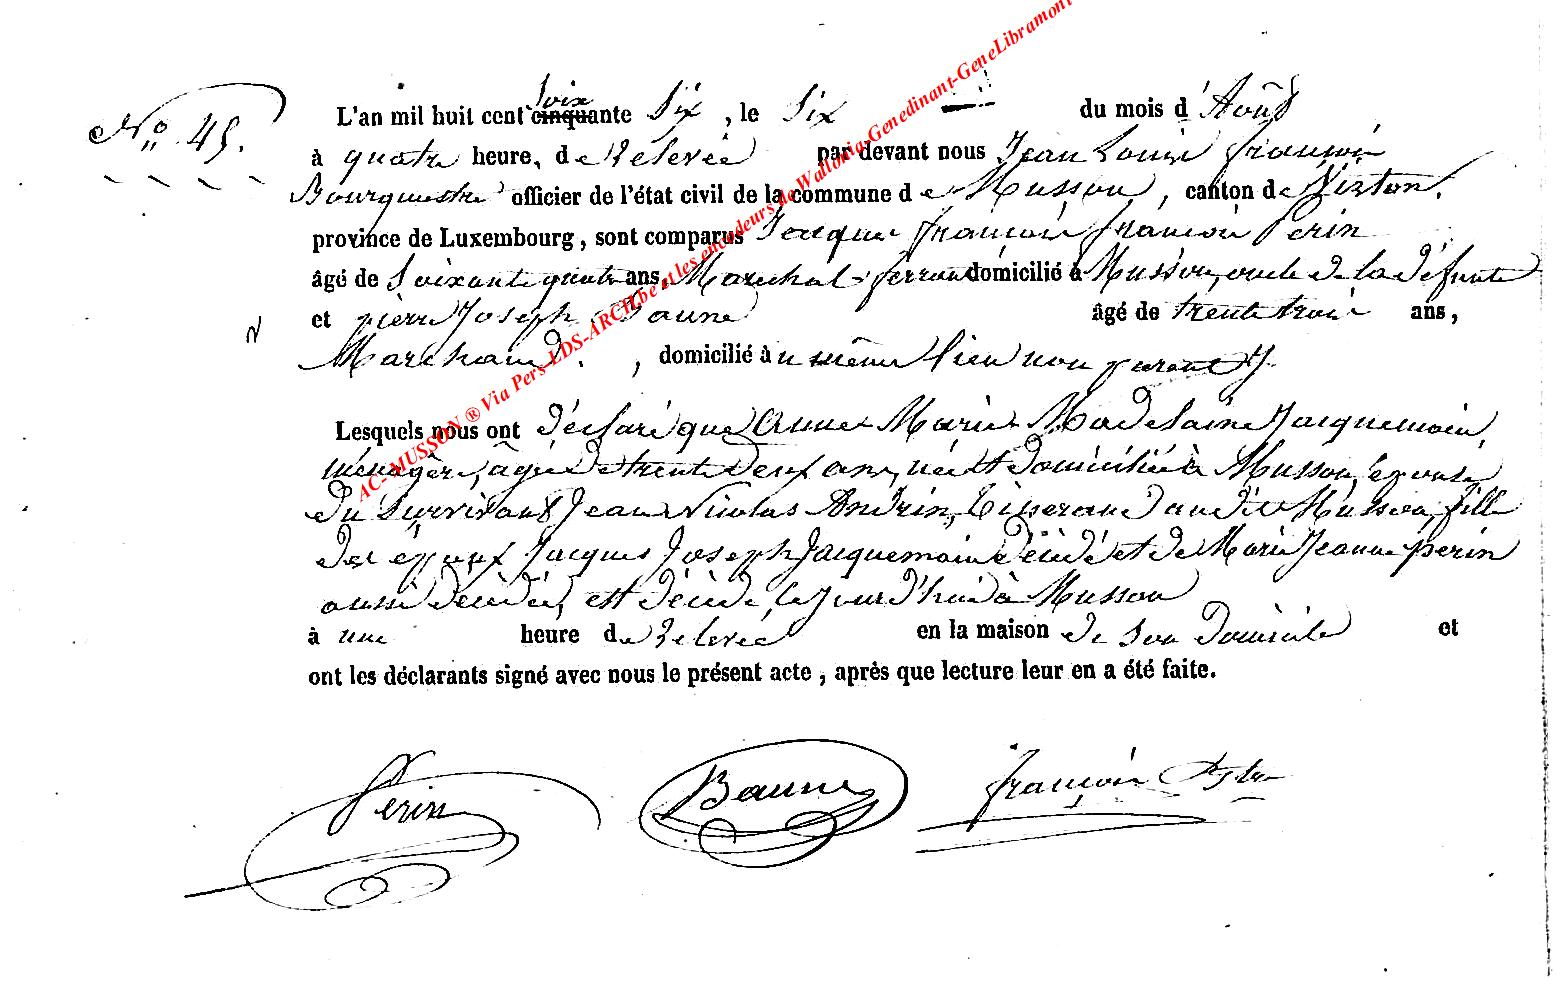 N° 45.
L'an mil huit cent soixante Six, le Six du mois d'Août
à quatre heure, de Relevée par devant nous Jean Louis François
Bourguestre officier de l'état civil de la commune de Musson, canton de Virton.
province de Luxembourg, sont comparus Jacques françois françois Perin
âgé de Soixante quatre ans, Maréchal ferrant domicilié à Musson, oncle de la défunte
et pierre Joseph Baune âgé de trente trois ans,
Marchand, domicilié à u même lieu non parent
Lesquels nous ont déclaré que Anne Marie Madelaine Jacquemain,
ménagère, âgée de trente deux ans, née et domiciliée à Musson, épouse
du Survivant Jean Nicolas Andrin, tisserand audit Musson, fille
des époux Jacques Joseph Jacquemain décédé et de Marie Jeanne perin
aussi décédée, est décédée, ce jourd'hui à Musson
à une heure de Relevée en la maison de son domicile et
ont les déclarants signé avec nous le présent acte, après que lecture leur en a été faite.
Perin Baune françois
AC-MUSSON ® Via Pers-LDS-ARCH.be et les encodeurs de Wallonia-Genedinant-GeneLibramont